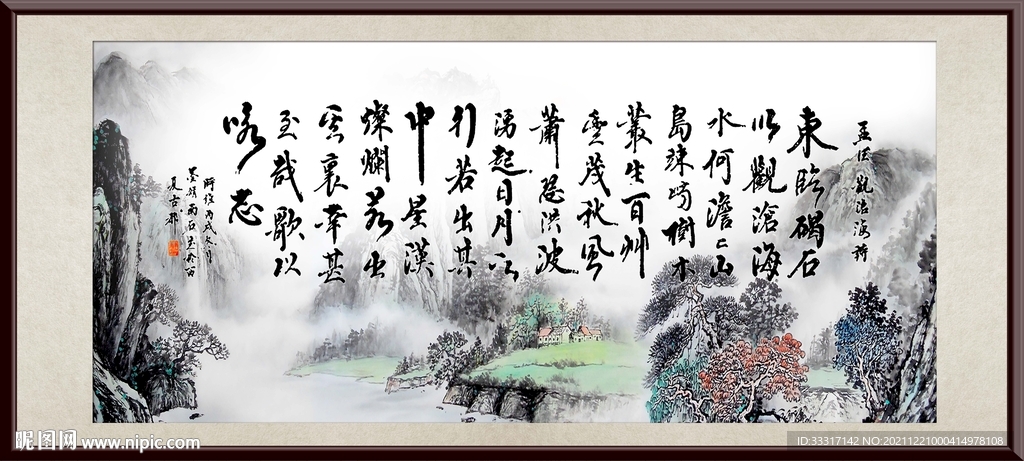 孟德觀滄海詩
東臨碣石
以觀滄海
水何澹〻山
島竦峙樹木
叢生百艸
豐茂秋風
蕭瑟洪波
湧起日月之
行若出其
中星漢
燦爛若出
其裏幸甚
至哉歌以
詠志
丙戌冬月
昵图网 www.nipic.com
ID:33317142 NO:20211221000414978108